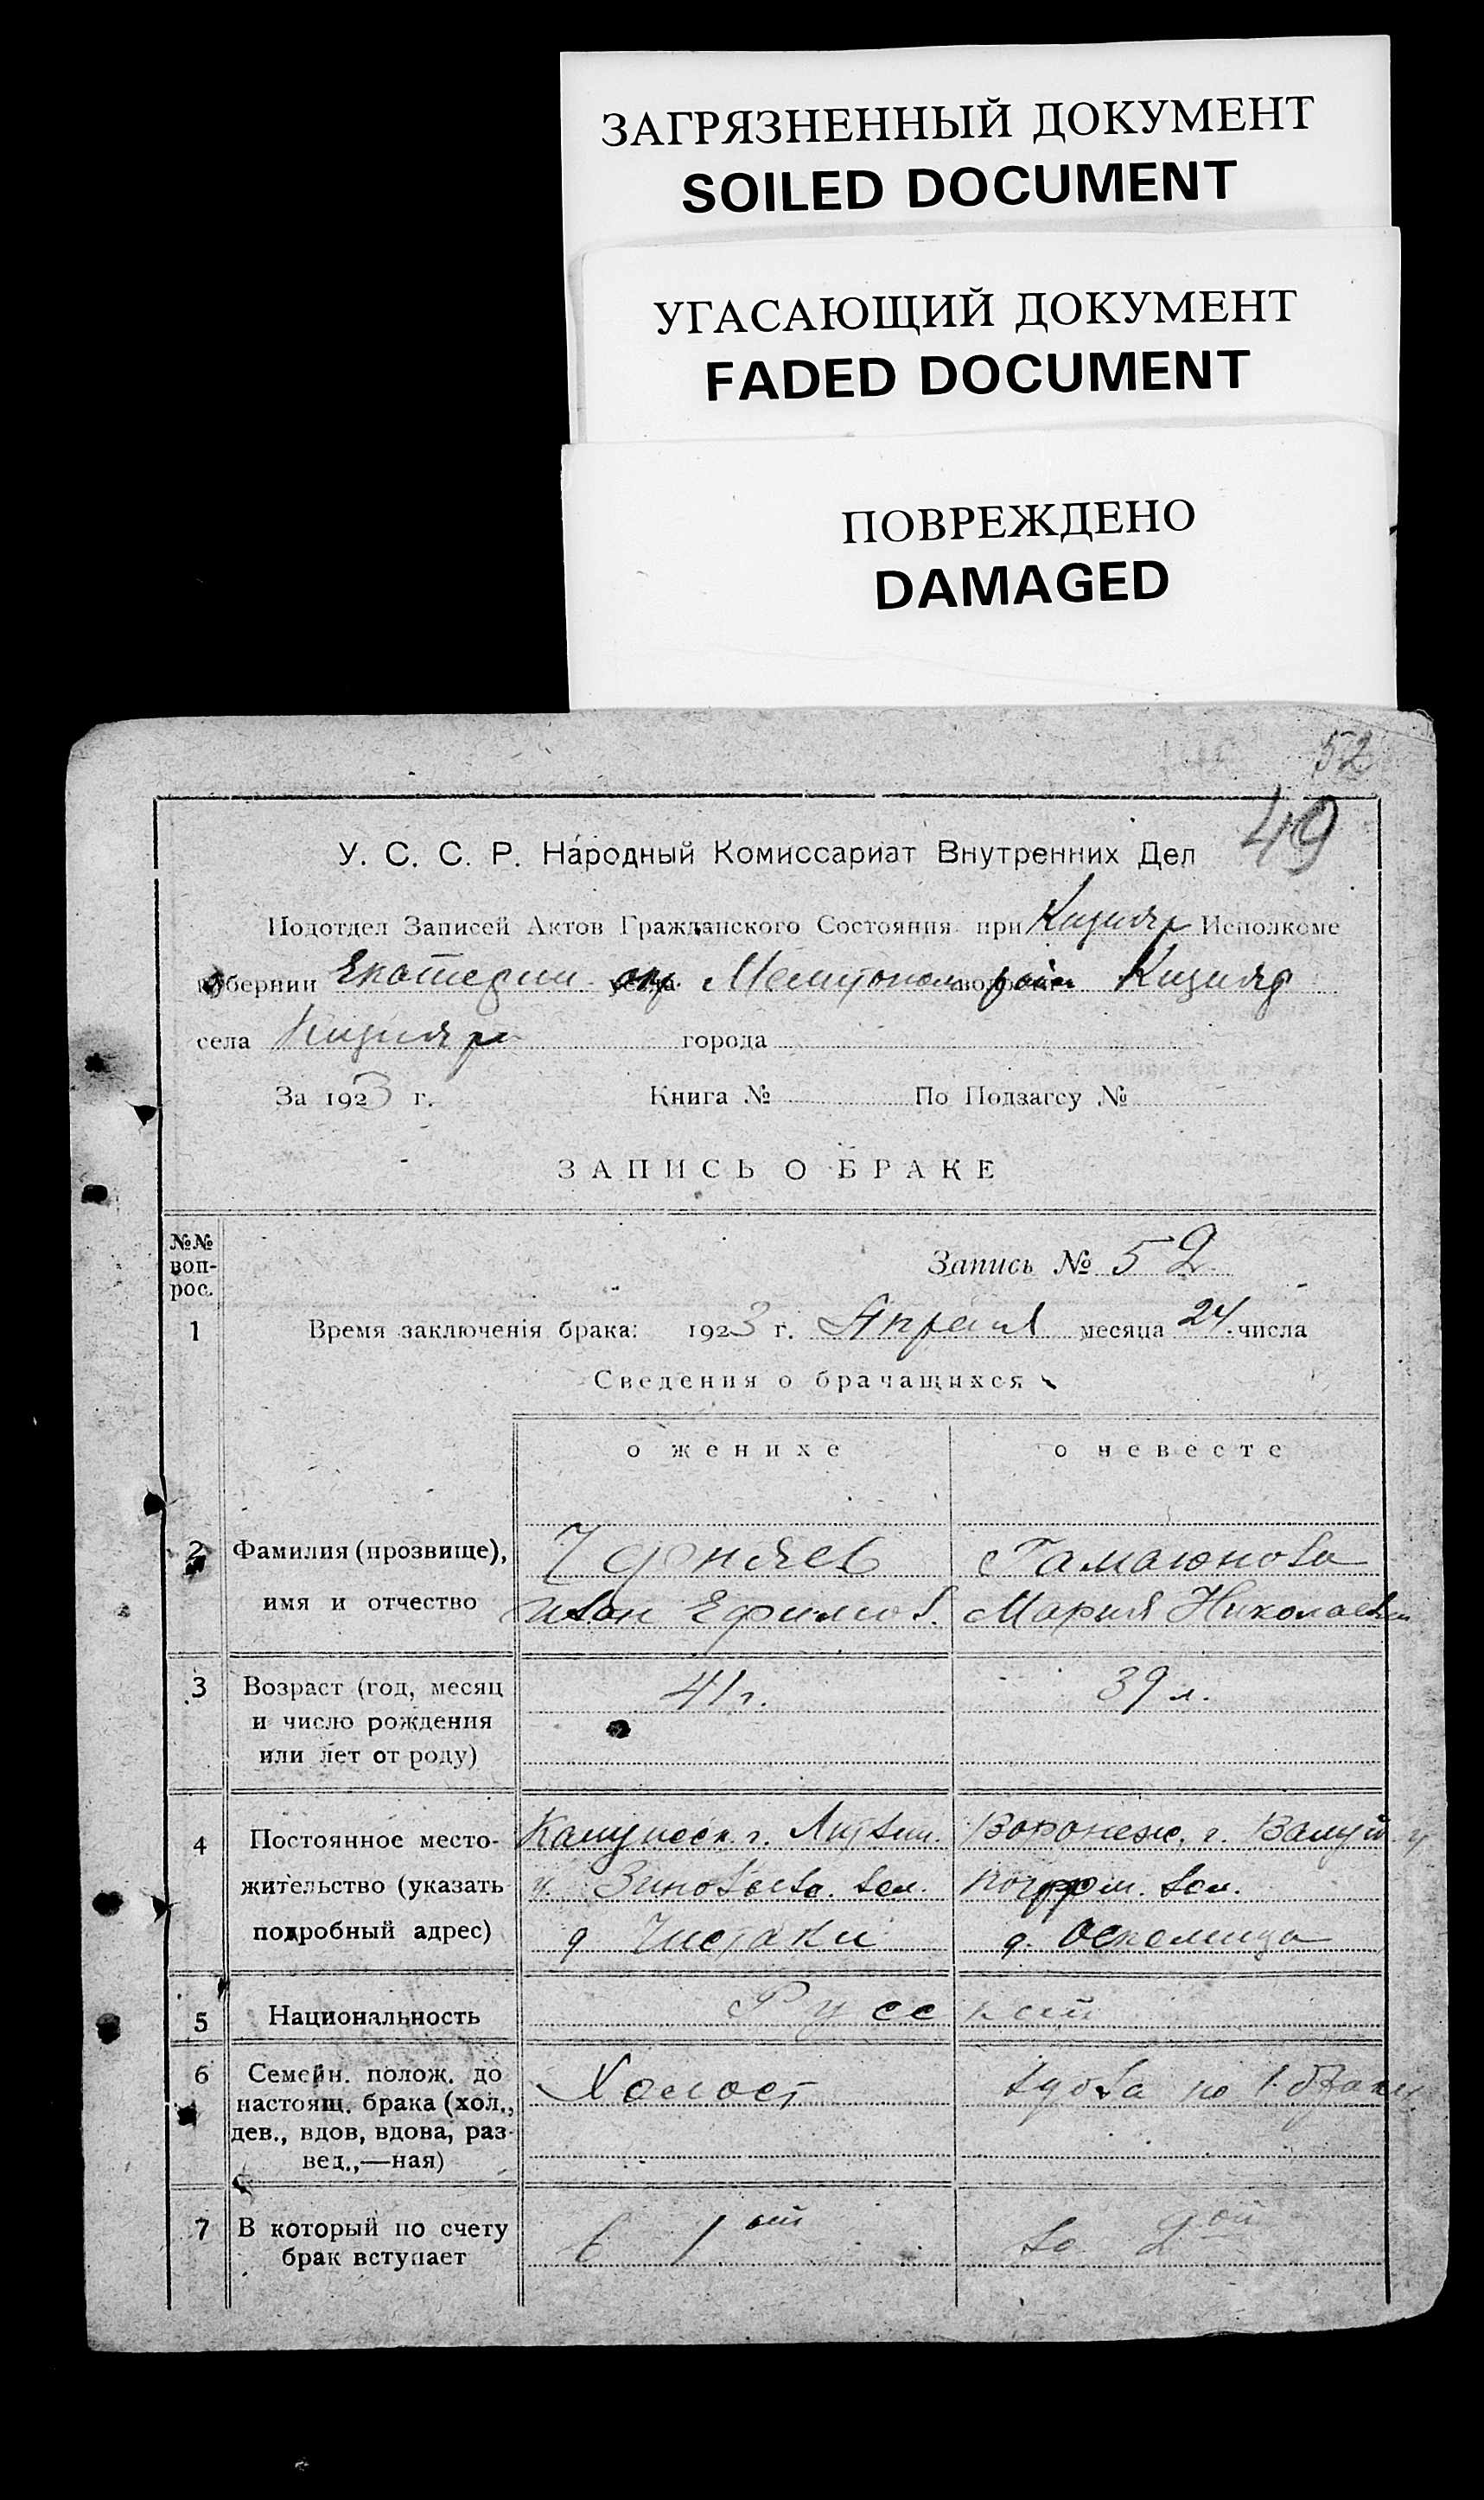 ЗАГРЯЗНЕННЫЙ ДОКУМЕНТ
SOILED DOCUMENT
УГАСАЮЩИЙ ДОКУМЕНТ
FADED DOCUMENT
ПОВРЕЖДЕНО
DAMAGED
52
49
У. С. С. Р. Народный Комиссариат Внутренних Дел
Подотдел Записей Актов Гражданского Состояния при Кизияр Исполкоме
губернии Екатерин окр. Мелитопол район Кизияр
села Кизияр города
За 1923 г. Книга № По Подзагсу №
ЗАПИСЬ О БРАКЕ
№№ воп- рос.
Запись № 52
1 Время заключенія брака: 1923 г. Апреля месяца 24 числа
Сведения о брачащихся
о женихе о невесте
2 Фамилия (прозвище), Гамаюнова
имя и отчество Иван Ефимов. Мария Николаевн
3 Возраст (год, месяц 41 г. 39 л.
и число рождения
или лет от роду)
4 Постоянное место- Калужск. г. Воронеж. г. Валуй. у
жительство (указать у. Зиновьева. вол. вол.
подробный адрес) д Чистаки д.
5 Национальность Русский
6 Семейн. полож. до Холост вдова по 1 браку
настоящ. брака (хол.,
дев., вдов, вдова, раз-
вед.,—ная)
7 В который по счету в 1 ый во 2 ой
брак вступает